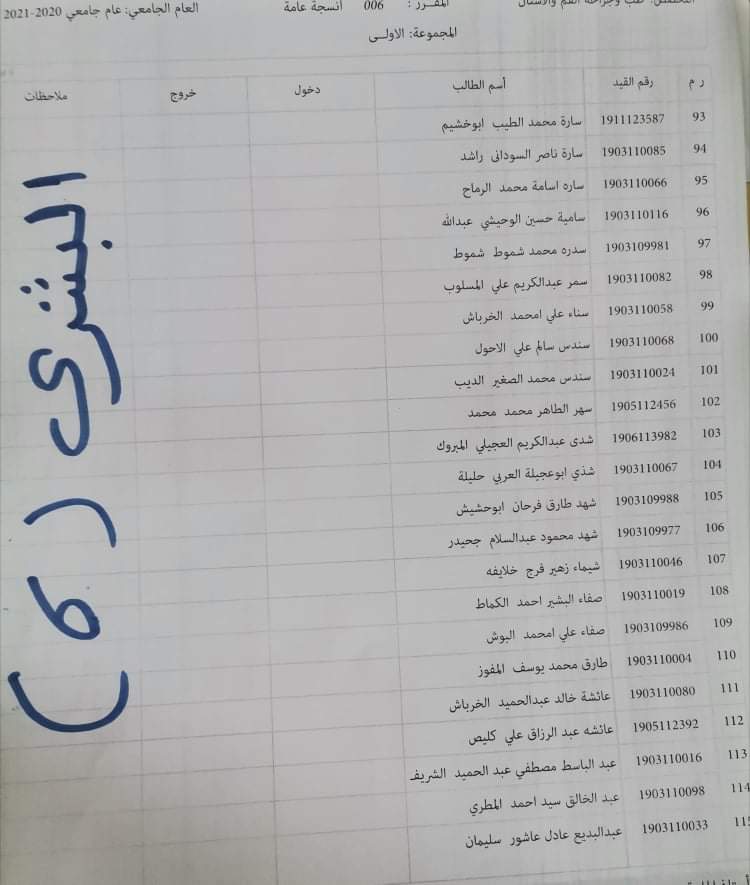 التخصص: طب وجراحة الفم والاسنان المقرر : 006 انسجة عامة العام الجامعي: عام جامعي 2020-2021
المجموعة: الاولى
ر م رقم القيد أسم الطالب دخول خروج ملاحظات
93 1911123587 سارة محمد الطيب ابوخشيم
94 1903110085 سارة ناصر السودانى راشد
95 1903110066 ساره اسامة محمد الرماح
96 1903110116 سامية حسين الوحيشي عبدالله
97 1903109981 سدره محمد شموط شموط
98 1903110082 سمر عبدالكريم علي المسلوب
99 1903110058 سناء علي امحمد الخرباش
100 1903110068 سندس سالم علي الاحول
101 1903110024 سندس محمد الصغير الديب
102 1905112456 سهر الطاهر محمد محمد
103 1906113982 شدى عبدالكريم العجيلي المبروك
104 1903110067 شذي ابوعجيلة العربي حليلة
105 1903109988 شهد طارق فرحان ابوحشيش
106 1903109977 شهد محمود عبدالسلام جحيدر
107 1903110046 شيماء زهير فرج خلايفه
108 1903110019 صفاء البشير احمد الكماط
109 1903109986 صفاء علي امحمد البوش
110 1903110004 طارق محمد يوسف المفوز
111 1903110080 عائشة خالد عبدالحميد الخرباش
112 1905112392 عائشه عبد الرزاق علي كليص
113 1903110016 عبد الباسط مصطفي عبد الحميد الشريف
114 1903110098 عبد الخالق سيد احمد المطري
115 1903110033 عبدالبديع عادل عاشور سليمان
البشرى (6)